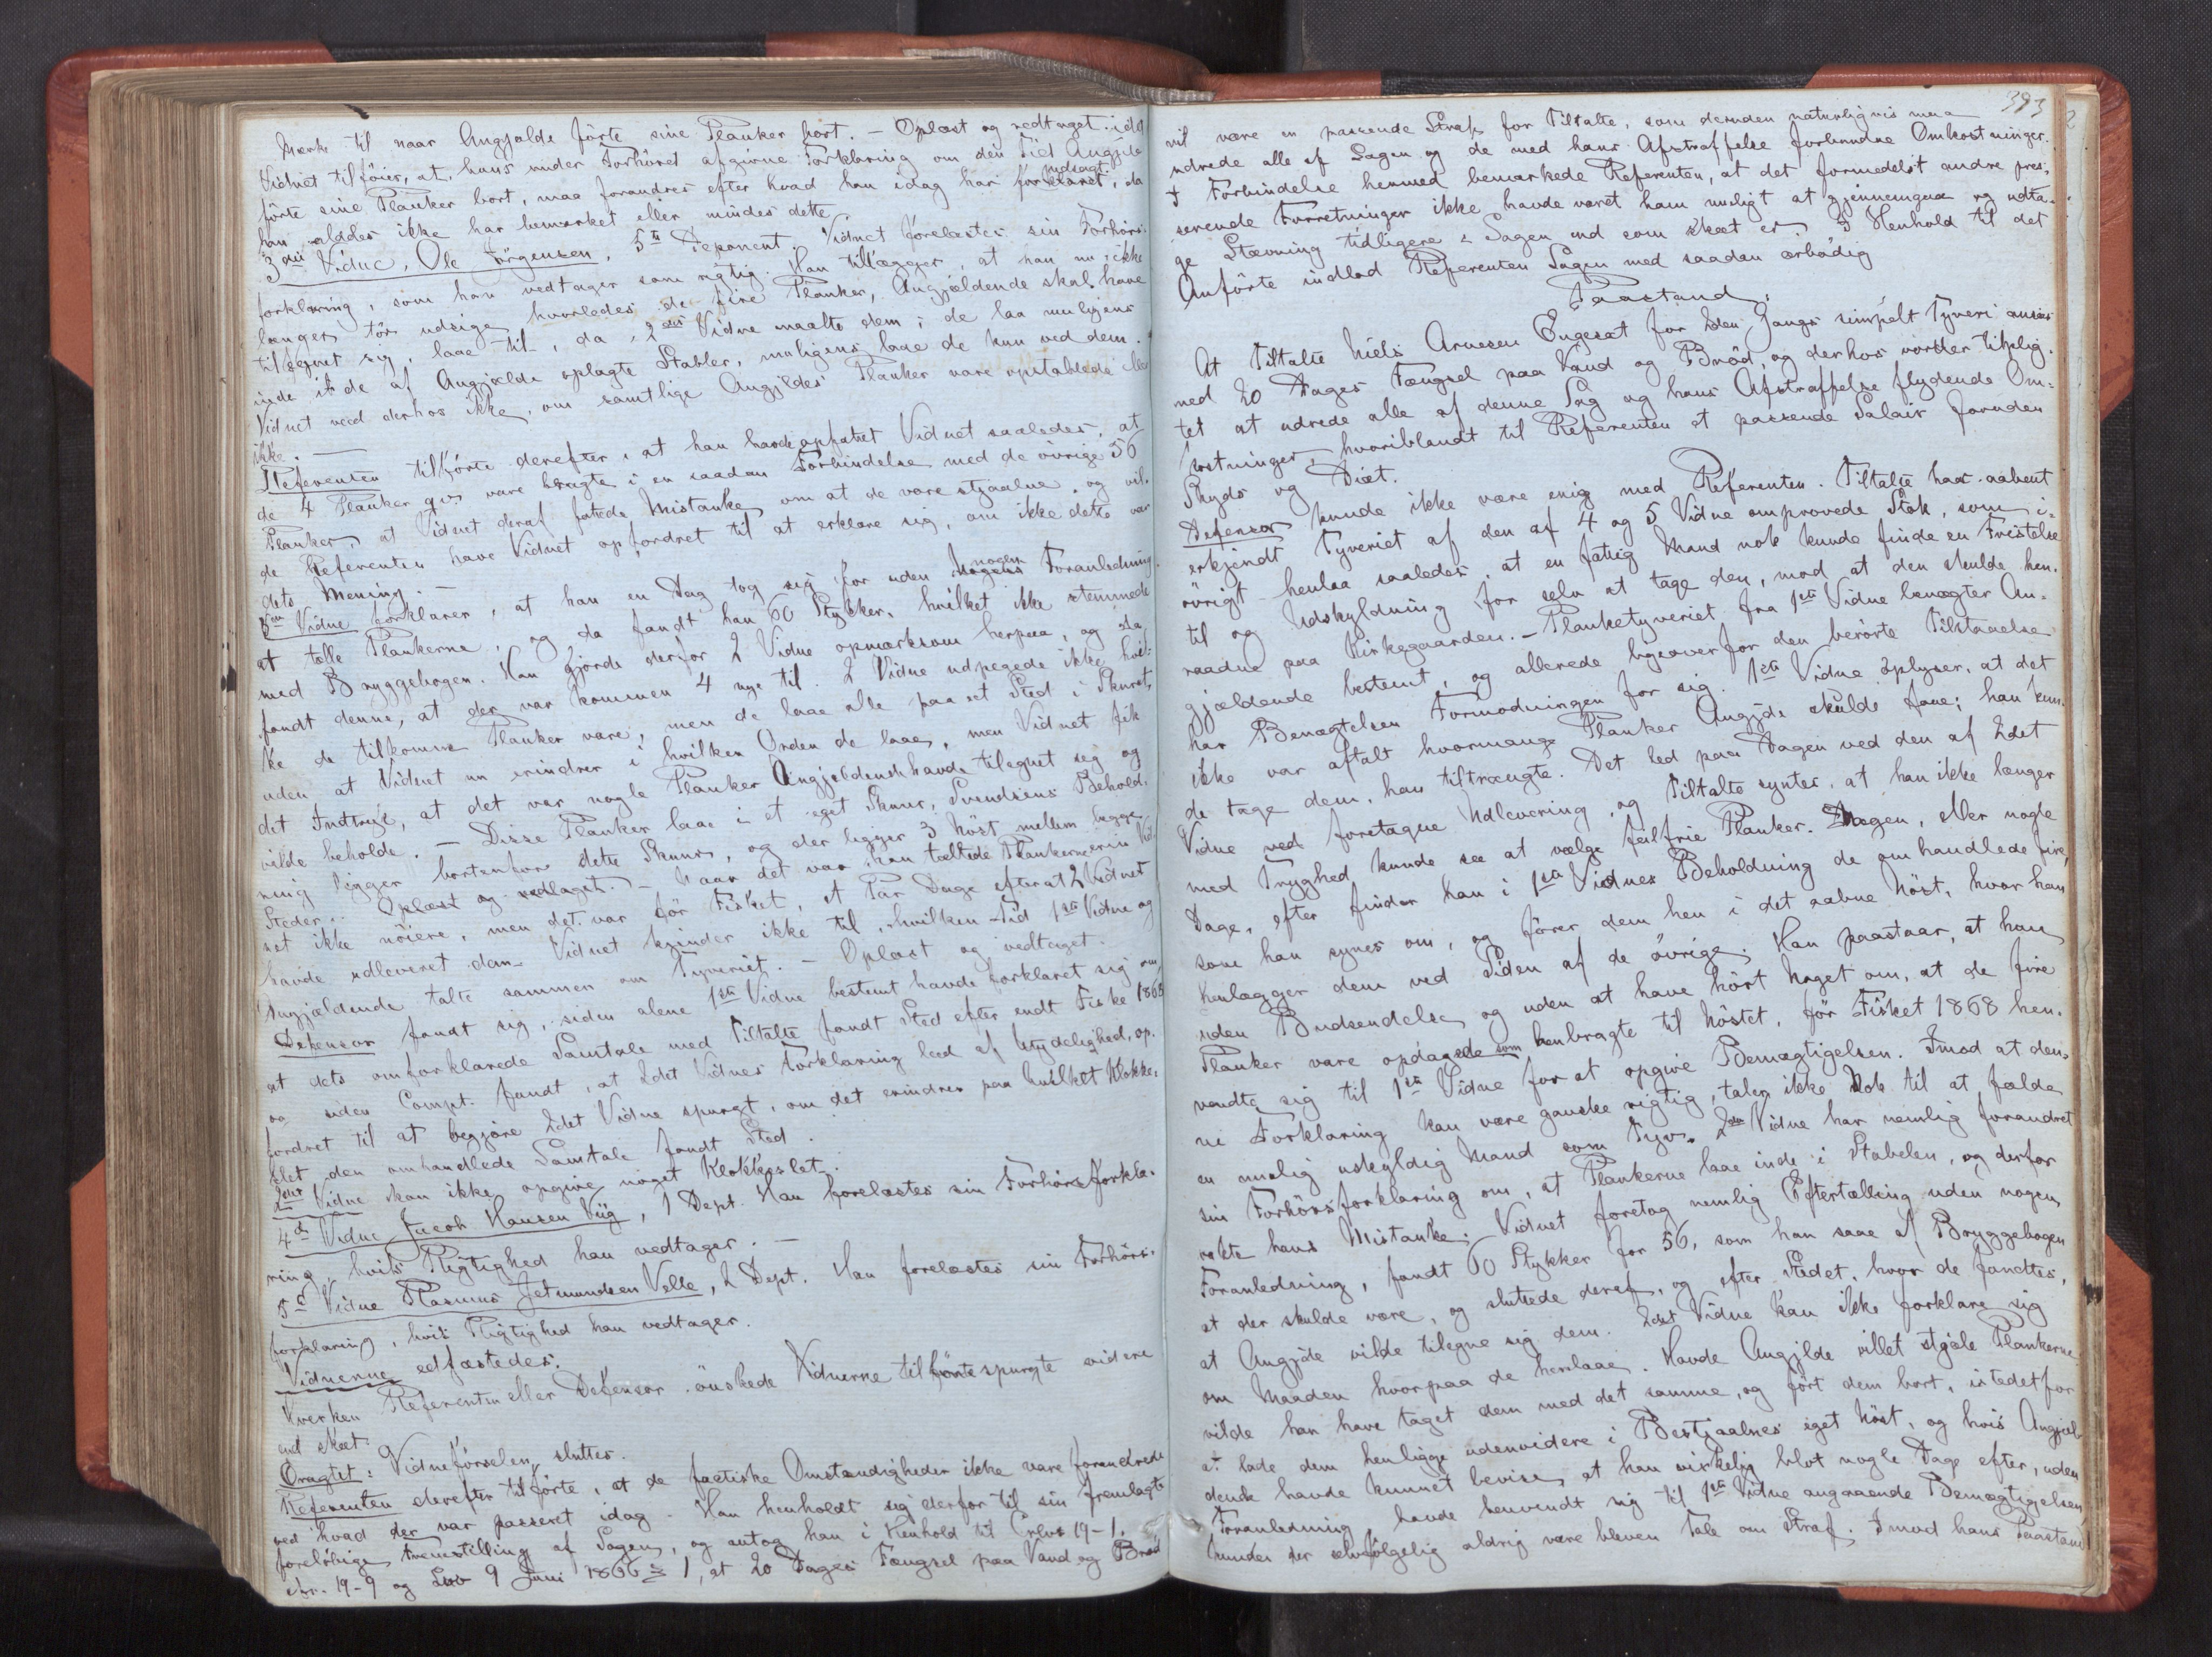 Mærke til naar Angjældende förte sine Planker bort. – Oplæst og vedtaget idet
Vidnet tilföier, at hans under Forhöret afgivne Forklaring om den Tid Angjelde
förte sine Planker bort, maa forandres efter hvad han idag har forklaret udsagt, da
han aldeles ikke har bemærket eller mindes dette
3die Vidne, Ole Jörgensen, 5te Deponent. Vidnet forelæstes sin Forhörs-
forklaring, som han vedtager som rigtig. Han tillægger, at han nu ikke
længer tör udsige hvorledes de fire Planker, Angjældende skal have
tilegnet sig, laae til, da 2det Vidne maalte dem; de laa muligens
inde i de af Angjælde oplagte Stabler, muligens laae de kun ved dem.
Vidnet veed derhos ikke, om samtlige Angjeldes Planker vare opstablede eller
ikke. –
Referenten tilförte derefter, at han havde opfattet Vidnet saaledes, at
de 4 Planker qvs vare bragte i en saadan Forbindelse med de övrige 56
Planker, at Vidnet deraf fattede Mistanke om at de vare stjaalne, og vil-
de Referenten have Vidnet opfordret til at erklære sig, om ikke dette var
dets Mening. –
3die Vidne forklarer, at han en Dag tog sig for uden nogen Foranledning
at tælle Plankerne, og da fandt han 60 Stykker, hvilket ikke stemmede
med Bryggebogen. Han gjorde derfor 2 Vidne opmærksom herpaa, og da
fandt denne, at der var kommen 4 nye til. 2 Vidne udpegede ikke hvil-
ke de tilkomne Planker vare, men de laae alle paa et Sted i Skuret,
uden at Vidnet nu erindrer i hvilken Orden de laae, men Vidnet fik
det Indtryk, at det var nogle Planker Angjeldende havde tilegnet sig og
vilde beholde. – Disse Planker laae i et eget Skuur, Svendsens Behold-
ning ligger bortenfor dette Skuur, og der ligger 3 höst mellem begge
Steder. Oplæst og vedtaget. – Naar det var han tællede Plankerne erin Vid-
net ikke nöiere, men det var för Fisket, et Par Dage efterat 2 Vidnet
havde udleveret dem. Vidnet kjender ikke til, hvilken Tid 1ste Vidne og
Angjældende talte sammen om Tyveriet. – Oplæst og vedtaget.
Defensor fandt sig, siden alene 1ste Vidne bestemt havde forklaret sig om,
at dets omforklarede Samtale med Tiltalte fandt Sted efter endt Fiske 1868
og siden Compt. fandt, at 2det Vidnes Forklaring led af Utydelighed, op-
fordret til at begjære 2det Vidne spurgt, om det erindrer paa hvilket Klokke-
slet den omhandlede Samtale fandt Sted.
2det Vidne kan ikke opgive noget Klokkeslet.
4d Vidne Jacob Hansen Viig, 1 Dept. Han forelæstes sin Forhörsforkla-
ring, hvis Rigtighed han vedtager. –
5d Vidne Rasmus Jetmundsen Velle, 2 Dept. Han forelæstes sin Forhörs-
forklaring, hvis Rigtighed han vedtager.
Vidnerne edfæstedes.
Hverken Referenten eller Defensor önskede Vidnerne tilförte spurgte videre
end skeet
Eragtet: Vidneförselen sluttes.
Referenten derefter tilförte, at de factiske Omstændigheder ikke vare forandrede
ved hvad der var passeret idag. Han henholdt sig derfor til sin fremlagte
forelöbige Fremstilling af Sagen, og antog han i Henhold til Crlvs 19-1.
cfr. 19-9 og Lov 9 Juni 1866 § 1, at 20 Dages Fængsel paa Vand og Bröd
393
vil være en passende Straf for Tiltalte, som desuden naturligvis maa
udrede alle af Sagen og de med hans Afstraffelse forbundne Omkostninger.
I Forbindelse hermed bemærkede Referenten, at det formedelst andre pres-
serende Forretninger ikke havde været ham muligt at gjennemgaa og udta-
ge Stævning tidligere i Sagen end som skeet er. I Henhold til det
Anförte indlod Referenten Sagen med saadan ærbödig
Paastand:
At Tiltalte Niels Arnesen Engeset for 2den Gangs simpelt Tyveri ansees
med 20 Dages Fængsel paa Vand og Bröd, og derhos vorder tilplig-
tet at udrede alle af denne Sag og hans Afstraffelse flydende Om-
kostninger, hvoriblandt til Referenten et passende Salair foruden
Skyds og Diæt.
Defensor kunde ikke være enig med Referenten. Tiltalte har aabent
erkjendt Tyveriet af den af 4 og 5 Vidne omprovede Stok, som i-
övrigt henlaa saaledes, at en fattig Mand nok kunde finde en Fristelse
til og Udskyldning for selv at tage den, mod at den skulde hen-
raadne paa Kirkegaarden. – Planketyveriet fra 1ste Vidne benægter An-
gjældende bestemt, og allerede ligeoverfor den berörte Tilstaaelse
har Benægtelsen Formodningen for sig. 1ste Vidne oplyser, at det
ikke var aftalt hvormange Planker Angjde skulde have; han kun-
de tage dem, han tiltrængte. Det led paa Dagen ved den af 2det
Vidne ved foretagne Udlevering, og Tiltalte syntes, at han ikke længer
med Tryghed kunde see at vælge feilfrie Planker. Dagen, eller nogle
Dage, efter finder han i 1ste Vidnes Beholdning de omhandlede fire,
som han synes om, og förer dem hen i det aabne höst, hvor han
henlægger dem ved Siden af de övrige. Han paastaar, at han
uden Budsendelse og uden at have hört Noget om, at de fire
Planker vare opdagede som henbragte til höstet, för Fisket 1868 hen-
vendte sig til 1ste Vidne for at opgive Bemægtigelsen. Imod at den-
ne Forklaring kan være ganske rigtig, taler ikke Nok til at fælde
en mulig uskyldig Mand som Tyv. 2det Vidne har nemlig forandret
sin Forhörsforklaring om, at Plankerne laae inde i Stabelen, og derfor
vakte hans Mistanke; Vidnet foretog nemlig Eftertælling uden nogen
Foranledning, fandt 60 Stykker for 56, som han saae af Bryggebogen
at der skulde være, og sluttede deraf, og efter Stedet, hvor de fandtes,
at Angjde vilde tilegne sig dem. 2det Vidne kan ikke forklare sig
om Maaden hvorpaa de henlaae. Havde Angjelde villet stjæle Plankerne
vilde han have taget dem med det samme, og fört dem bort, istedetfor
at lade dem henligge udenvidere i Bestjaalnes eget höst, og hvis Angjel-
dende havde kunnet bevise, at han virkelig blot nogle Dage efter, uden
Foranledning, havde henvendt sig til 1ste Vidne angaaende Bemægtigelsen,
kunde der selvfölgelig aldrig være bleven Tale om Straf. Imod hans Paastand